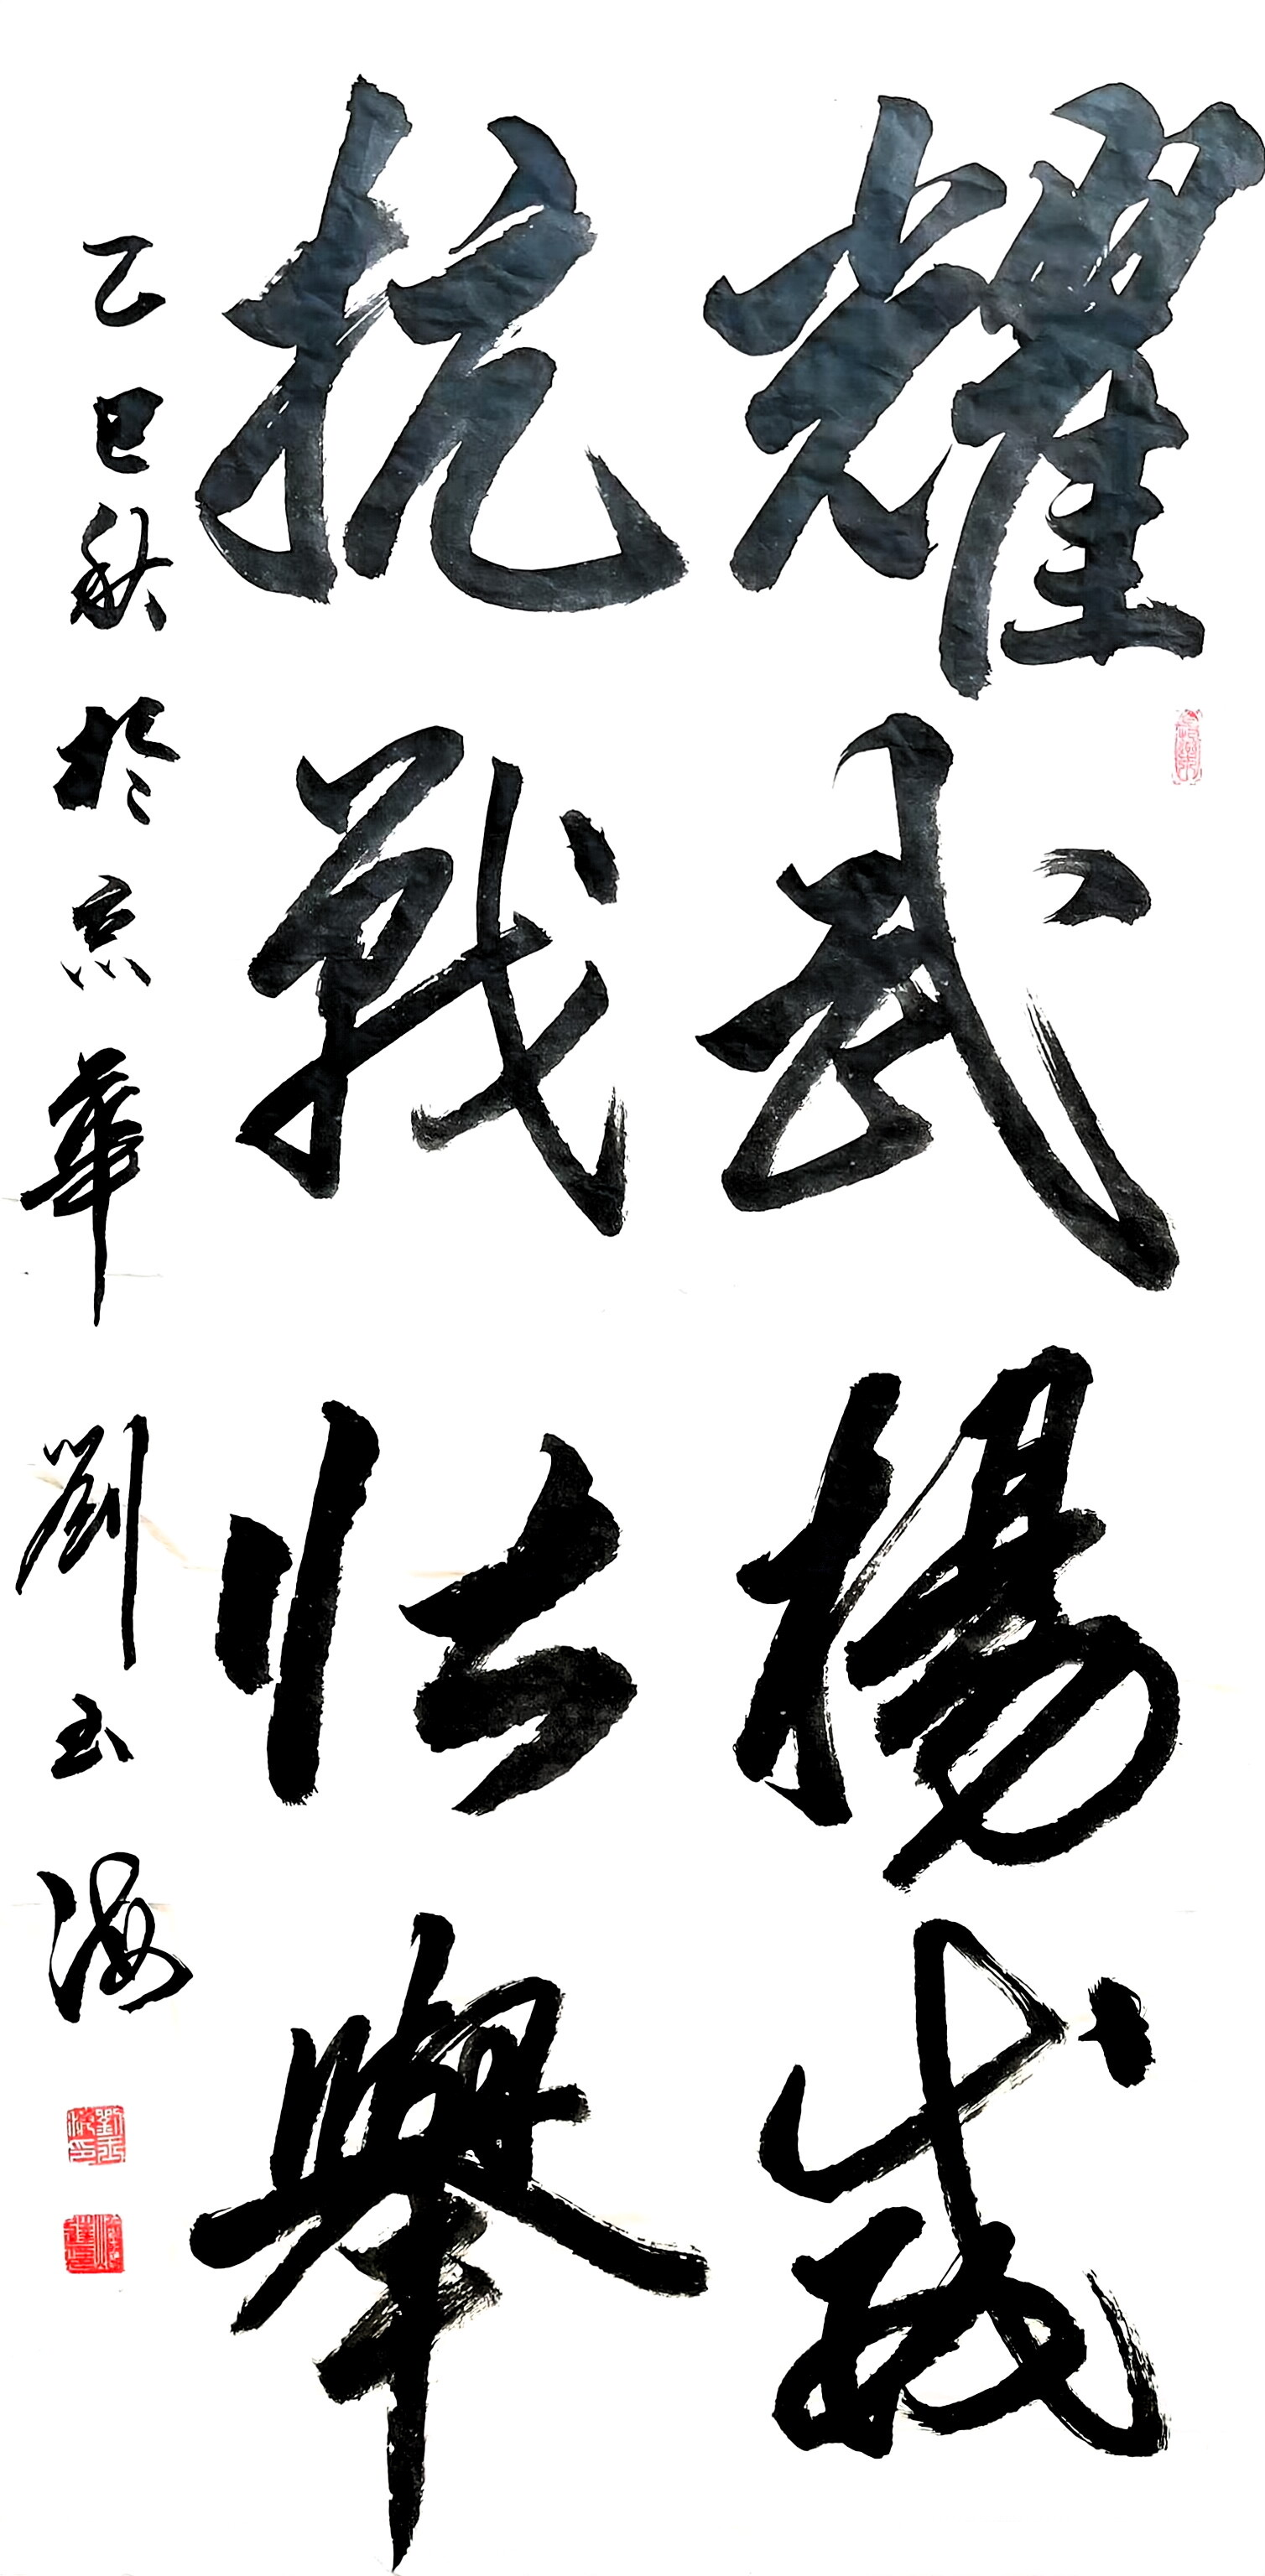 耀武揚威
抗戰壯舉
乙巳秋於京華劉玉海